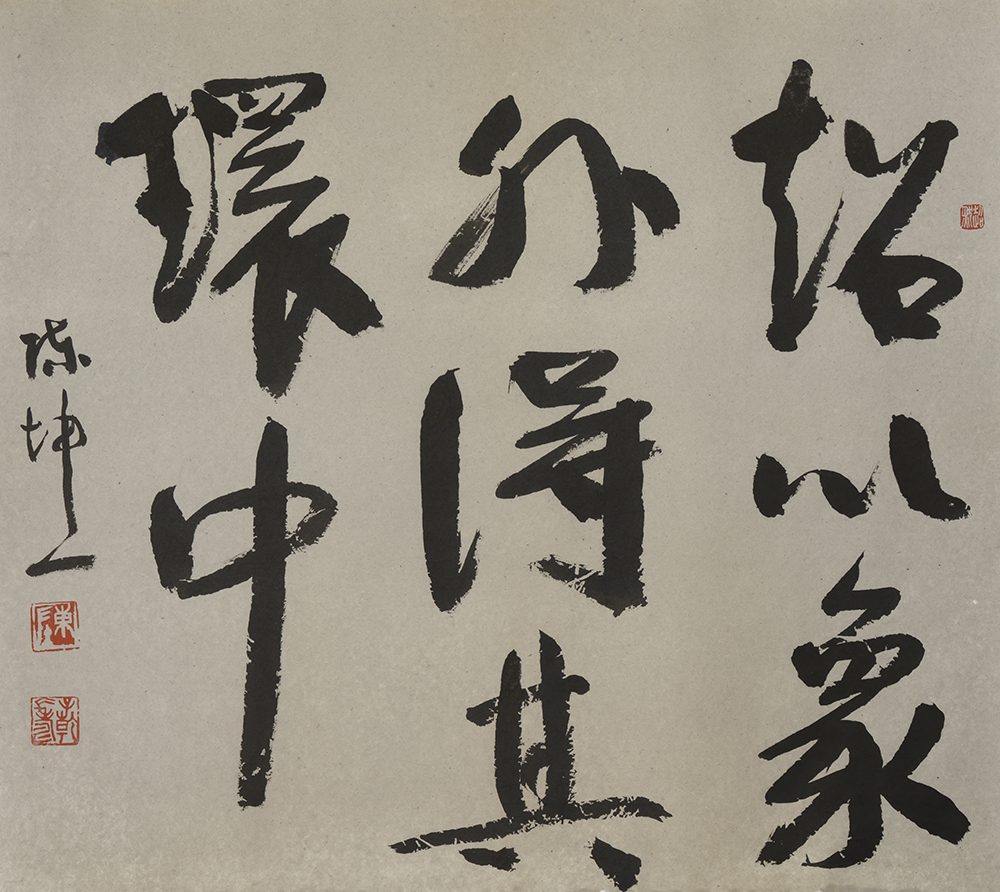 超以象
外得其
環中
陳坤一
陳